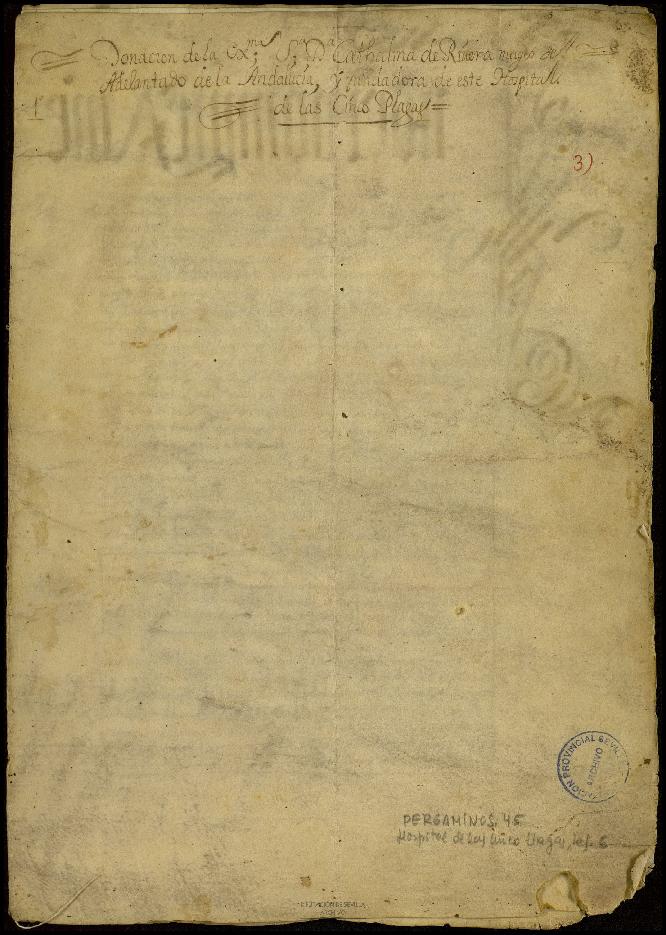 Donacion de la Ex.ma S.ra D.a Cathalina de Rivera
Adelantado de la Andalucia, y fundadora de este Hospital
de las Cinco Plagas=
1
3)
PERGAMINOS, 45
Hospital de las Cinco Llagas, leg. 6
PROVINCIAL SEVILLA
ARCHIVO
DIPUTACIÓN DE SEVILLA
ARCHIVO